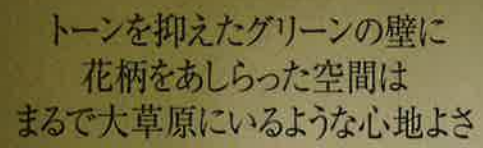 トーンを抑えたグリーンの壁に
花柄をあしらった空間は
まるで大草原にいるような心地よさ